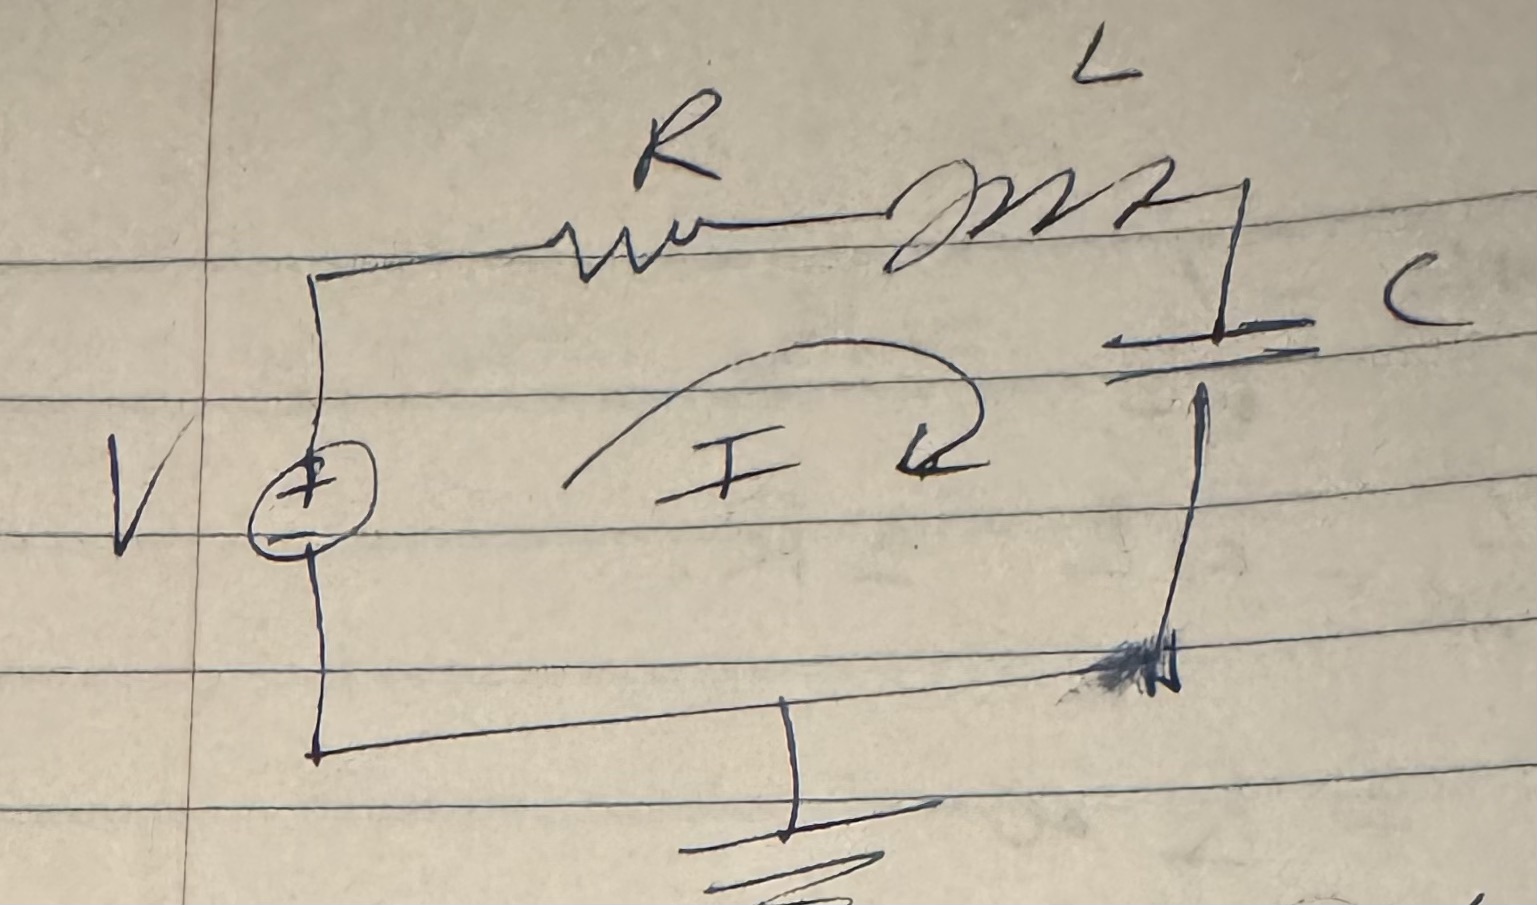 L
R
C
V
I
+
-